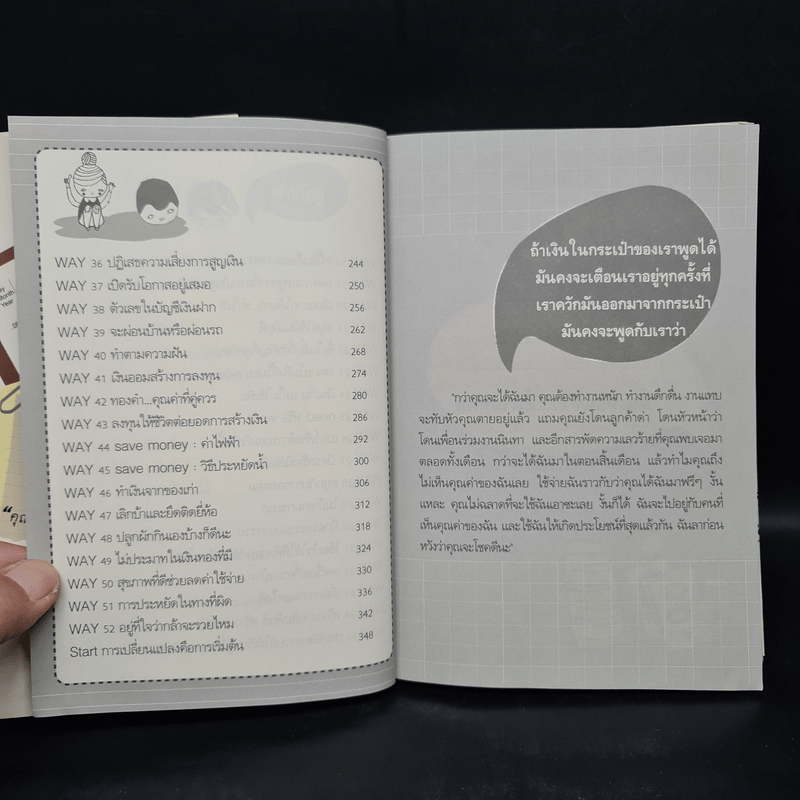 WAY 36 ปฏิเสธความเสี่ยงการสูญเงิน 244
WAY 37 เปิดรับโอกาสอยู่เสมอ 250
WAY 38 ตัวเลขในบัญชีเงินฝาก 256
WAY 39 จะผ่อนบ้านหรือผ่อนรถ 262
WAY 40 ทำตามความฝัน 268
WAY 41 เงินออมสร้างการลงทุน 274
WAY 42 ทองคำ...คุณค่าที่คู่ควร 280
WAY 43 ลงทุนให้ชีวิตต่อยอดการสร้างเงิน 286
WAY 44 save money : ค่าไฟฟ้า 292
WAY 45 save money : วิธีประหยัดน้ำ 300
WAY 46 ทำเงินจากของเก่า 306
WAY 47 เลิกบ้าและยึดติดยี่ห้อ 312
WAY 48 ปลูกผักกินเองบ้างก็ดีนะ 318
WAY 49 ไม่ประมาทในเงินทองที่มี 324
WAY 50 สุขภาพที่ดีช่วยลดค่าใช้จ่าย 330
WAY 51 การประหยัดในทางที่ผิด 336
WAY 52 อยู่ที่ใจว่ากล้าจะรวยไหม 342
Start การเปลี่ยนแปลงคือการเริ่มต้น 348
ถ้าเงินในกระเป๋าของเราพูดได้
มันคงจะเตือนเราอยู่ทุกครั้งที่
เราควักมันออกมาจากกระเป๋า
มันคงจะพูดกับเราว่า
"กว่าคุณจะได้ฉันมา คุณต้องทำงานหนัก ทำงานดึกดื่น งานแทบ
จะทับหัวคุณตายอยู่แล้ว แถมคุณยังโดนลูกค้าด่า โดนหัวหน้าว่า
โดนเพื่อนร่วมงานนินทา และอีกสารพัดความเลวร้ายที่คุณพบเจอมา
ตลอดทั้งเดือน กว่าจะได้ฉันมาในตอนสิ้นเดือน แล้วทำไมคุณถึง
ไม่เห็นคุณค่าของฉันเลย ใช้จ่ายฉันราวกับว่าคุณได้ฉันมาฟรีๆ งั้น
แหละ คุณไม่ฉลาดที่จะใช้ฉันเอาซะเลย งั้นก็ได้ ฉันจะไปอยู่กับคนที่
เห็นคุณค่าของฉัน และใช้ฉันให้เกิดประโยชน์ที่สุดแล้วกัน ฉันลาก่อน
หวังว่าคุณจะโชคดีนะ"